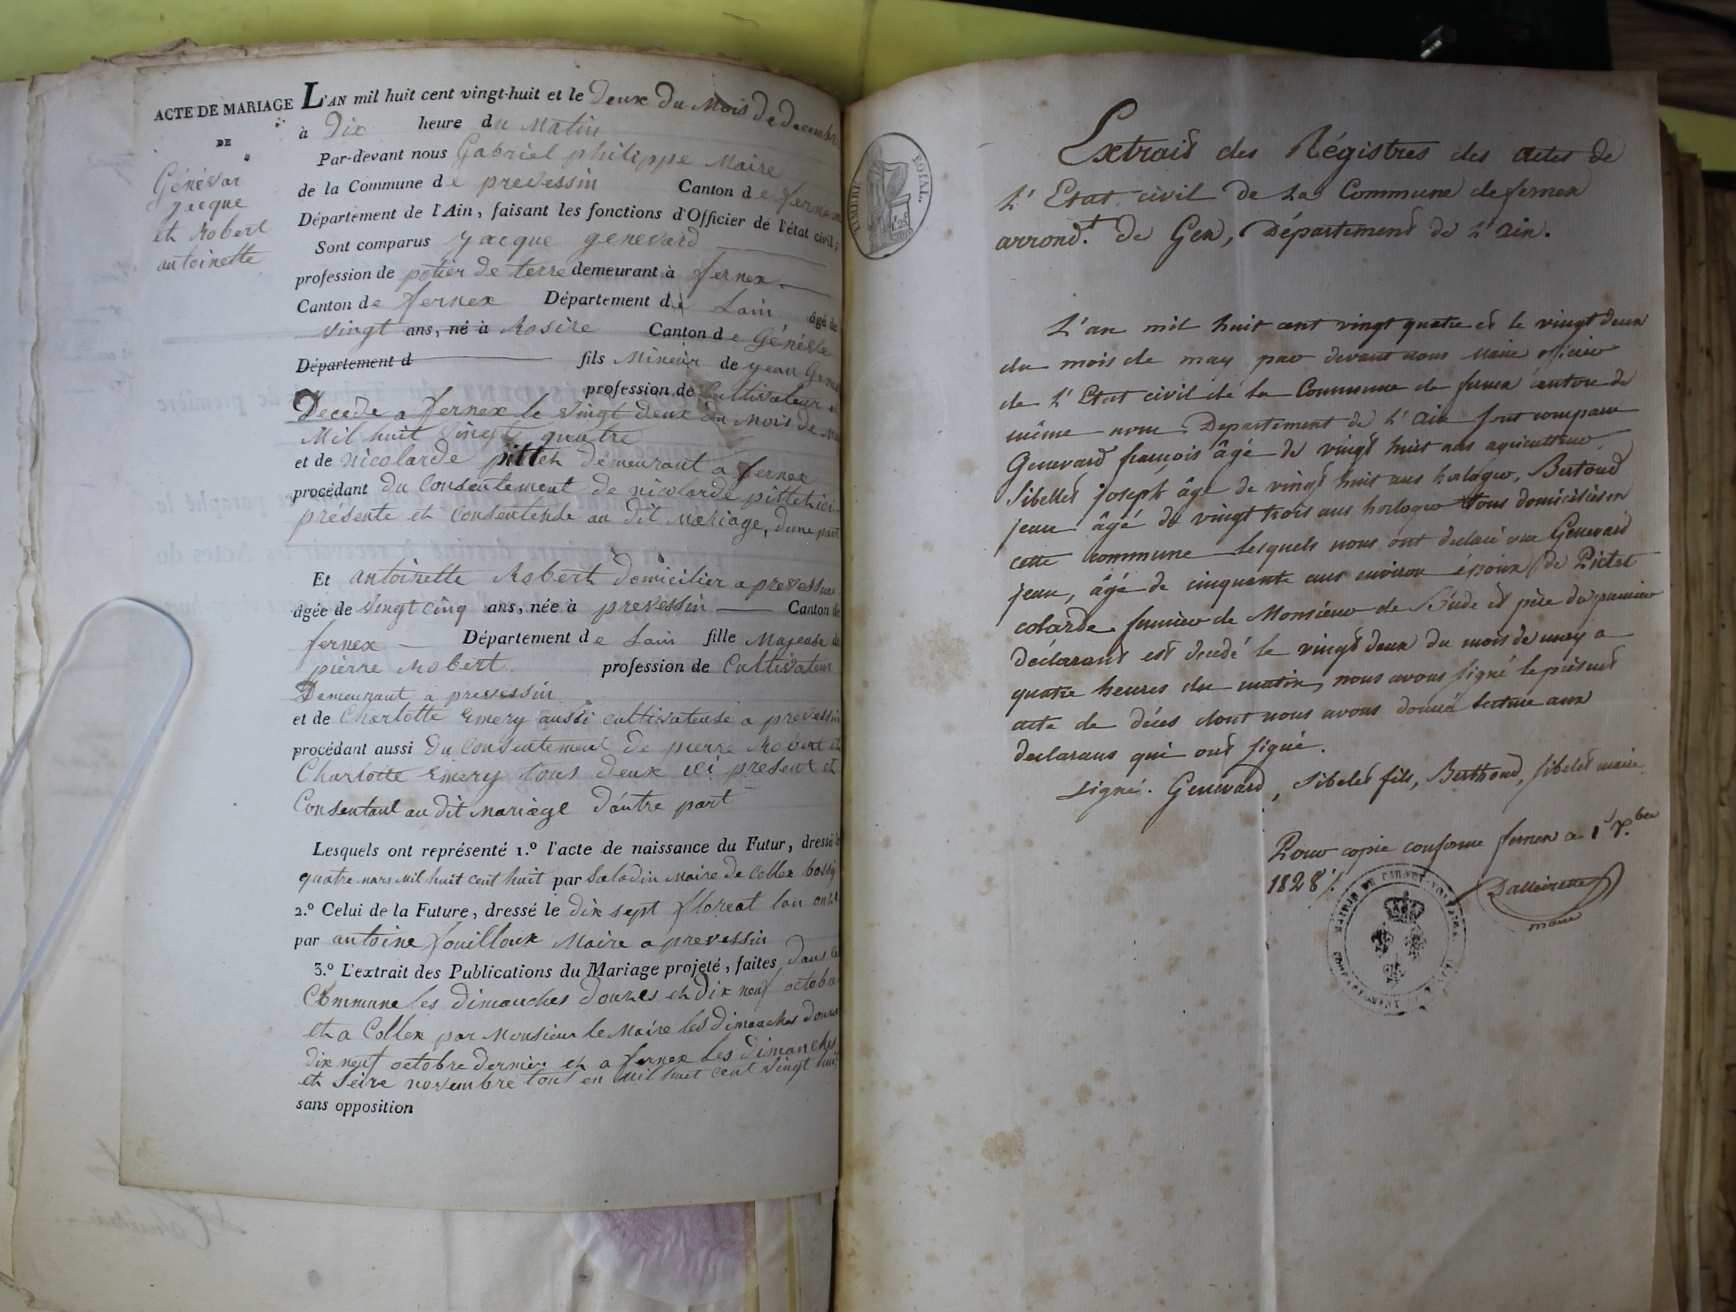 ACTE DE MARIAGE
DE
Génévar
Jacque
et Robert
antoinette
L'AN mil huit cent vingt-huit et le deux du Mois de decembre
à Dix heure du Matin
Par-devant nous Gabriel philippe Maire
de la Commune de prevessin Canton de fernex
Département de l'Ain, faisant les fonctions d'Officier de l'état civil;
Sont comparus Jacque genevard
profession de potier de terre demeurant à fernex
Canton de fernex Département de Lain âgé de
vingt ans, né à Rosire Canton de Génève
Département d fils Mineur de jean
profession de Cultivateur
Decede a fernex le vingt deux du Mois de
Mil huit vingt quatre
et de Nicolarde pittet demeurant a fernex
procédant du Consentement de nicolarde pittet ici
présente et Consentende au dit Mariage, dune part
Et antoinette Robert domicilier a prevessin
âgée de vingt cinq ans, née à prevessin Canton de
fernex Département de Lain fille Majeuse de
pierre Robert profession de Cultivateur
Demeurant a prevessin
et de Charlotte Emery aussi cultivateuse a prevessin
procédant aussi du Consentement de pierre Robert et
Charlotte Emery tous deux ici present et
Consentant au dit Mariage d'autre part
Lesquels ont représenté 1.º l'acte de naissance du Futur, dressé le
quatre mars Mil huit Cent huit par Saladin Maire de Collex bossy
2.º Celui de la Future, dressé le dix sept floreal lan onze
par antoine fouilloux Maire a prevessin
3.º L'extrait des Publications du Mariage projeté, faites dans la
Commune les dimanches douzes et dix neuf octobre
et a Collex par Monsieur le Maire les dimanches douze
dix neuf octobre dernier et a fernex les dimanches
et Seire novembre tout en Mil huit cent vingt huit
sans opposition
TIMBRE ROYAL
Extrait des Régistres des actes de
L'Etat civil de La Commune de fernex
arrond.t de Gex, Département de L'ain.
L'an mil huit cent vingt quatre et le vingt deux
du mois de may par devant nous Maire officier
de L'Etat civil de la Commune de fernex canton de
même nom Departement de L'Ain sont comparu
Genevard françois âgé de vingt huit ans agriculteur
Sibellet joseph âgé de vingt huit ans horloger, Bertoud
jean âgé de vingt trois ans horloger tous domiciliés en
cette commune lesquels nous ont declaré que Genevard
jean, âgé de cinquante ans environ époux de Pictet
colarde fermier de Monsieur de Budé et père du premier
declarant est decedé le vingt deux du mois de may a
quatre heures du matin, nous avons signé le présent
acte de décès dont nous avons donné lecture aux
declarans qui ont signé.
signé. Genevard, Sibelet fils, Berthoud, Sibelet maire
Pour copie conforme fernex ce 1.r X.bre
1828
maire